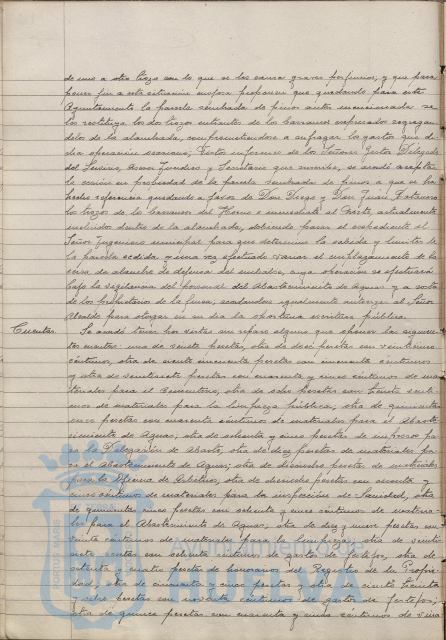 de uno a otro trozo con lo que se les causa graves perjuicios, y que para
poner fin a esta situación proponen que quedando para este
Ayuntamiento la parcela sembrada de pinos antes mencionada se
les restituya los dos trozos
de la alambrada, comprometiéndose a sufragar los gastos que
dicha operación ocasione; Vistos informes de los Señores Gestor Delegado
del Servicio, Asesor Jurídico y Secretario que suscribe, se acordó aceptar
la cesión en propiedad de la parcela sembrada de pinos a que se ha
hecho referencia quedando a favor de Don Diego y Don Juan
los trozos de los barrancos del Horno e inmediato al Norte, actualmente
incluidos dentro de la alambrada, debiendo pasar el expediente al
Señor Ingeniero municipal para que determine la cabida y linderos de
la parcela cedida, y una vez efectuado variar el emplazamiento de la
cerca de alambre de defensa del embalse, cuya operación se efectuará
bajo la vigilancia del personal del Abastecimiento de Aguas y a costa
de los propietarios de la finca, acordándose igualmente autorizar al Señor
Alcalde para otorgar en su día la oportuna escritura pública.
Cuentas. Se acordó tener por vistas sin reparo alguno que oponer las siguien-
tes cuentas: una de veinte pesetas, otra de doce pesetas con veinticinco
céntimos, otra de ciento cincuenta pesetas con cincuenta céntimos
y otra de veintiseis pesetas con cuarenta y cinco céntimos de ma-
teriales para el Cementerio; otra de ocho pesetas con treinta cénti-
mos de materiales para la limpieza pública; otra de quinientas
once pesetas con cuarenta céntimos de materiales para el Abaste-
cimiento de Aguas; otra de setenta y cinco pesetas de impresos pa-
ra la Delegación de Abasto; otra de diez pesetas de materiales pa-
ra el Abastecimiento de Aguas; otra de doscientas pesetas de materiales
para la Oficina de Arbitrios, otra de doscientas pesetas con cincuenta y
cinco céntimos de materiales para la inspección de Sanidad, otra
de quinientas cinco pesetas con ochenta y cinco céntimos de materia-
les para el Abastecimiento de Aguas, otra de diez y nueve pesetas con
veinte céntimos de materiales para la limpieza; otra de veinti-
siete pesetas con setenta céntimos de gastos de festejos, otra de
setenta y cuatro pesetas de honorarios del Registro de la Propie-
dad, otra de cincuenta y cinco pesetas y otra de ciento treinta
y ocho pesetas con noventa céntimos de gastos de festejos;
otra de quince pesetas con cuarenta y cinco céntimos de
PORTUS MARIS